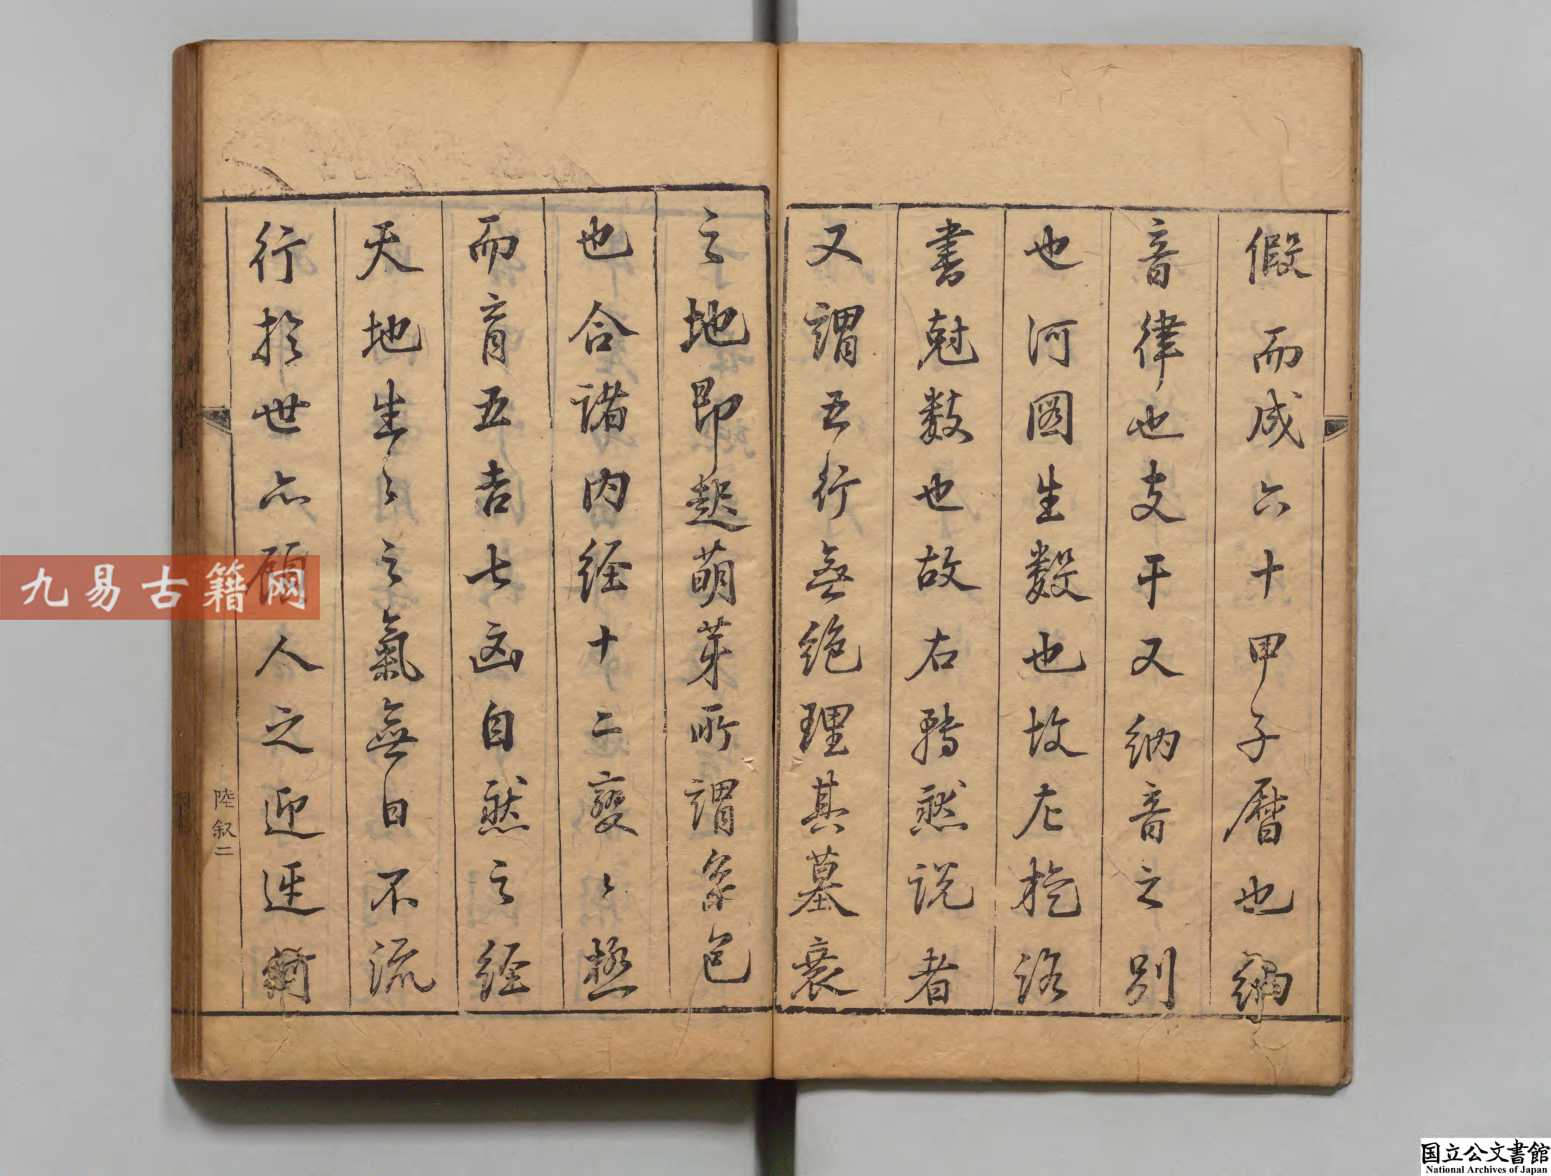 假而成六十甲子曆也納
音律也支干又納音之別
也河圖生數也故左旋洛
書尅數也故右轉然說者
又謂五行無絶理其墓衰
之地即起萌芽所謂系包
也合諸内經十二變之極
而育五吉七凶自然之經
天地生之之氣無日不流
行於世亦顧人之迎迓何
陸叙二
九易古籍网
国立公文書館
National Archives of Japan